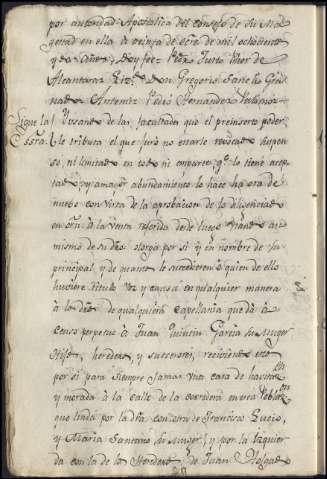 por autoridad Apostolica del consejo de su Mag
estad en ella a treinta de de mil ochocientos
y dos años. Doy fee = Pedro Justo Mier de
Alcantara = Don Gregorio Sanchez
Antemi = Pedro Fernandez
Sigue la Usando de las facultades que el preinserto poder
Essra. le tributa el que juro no estarle revocado suspen
so, ni limitado en todo ni em parte, qe. lo tiene acep
tado y pr. a mayor abundamiento lo hace ahora de
nuevo con vista de la aprobacion de las diligencias
en orn. à la venta referida desde luego
mismo de su dro. otorga por si y en nombre de la
principal y de quantos le succedieren ò quien de ello
huviere titulo voz y causa en qualquier manera
à la dha. de qualquiera capellania que dà à
censo perpetuo à Juan Quintin Garcia su muger
hijos, herederos, y succesores, recivientes esto
por si para siempre jamas una casa de havitacn.
y morada à la calle de la corredera en esta Poblacn.
que linda por la dra. con otra de Francisco Rucio,
y Maria Santano su muger, y por la Izquier
da con la de los Herederos de Juan Hidalgo